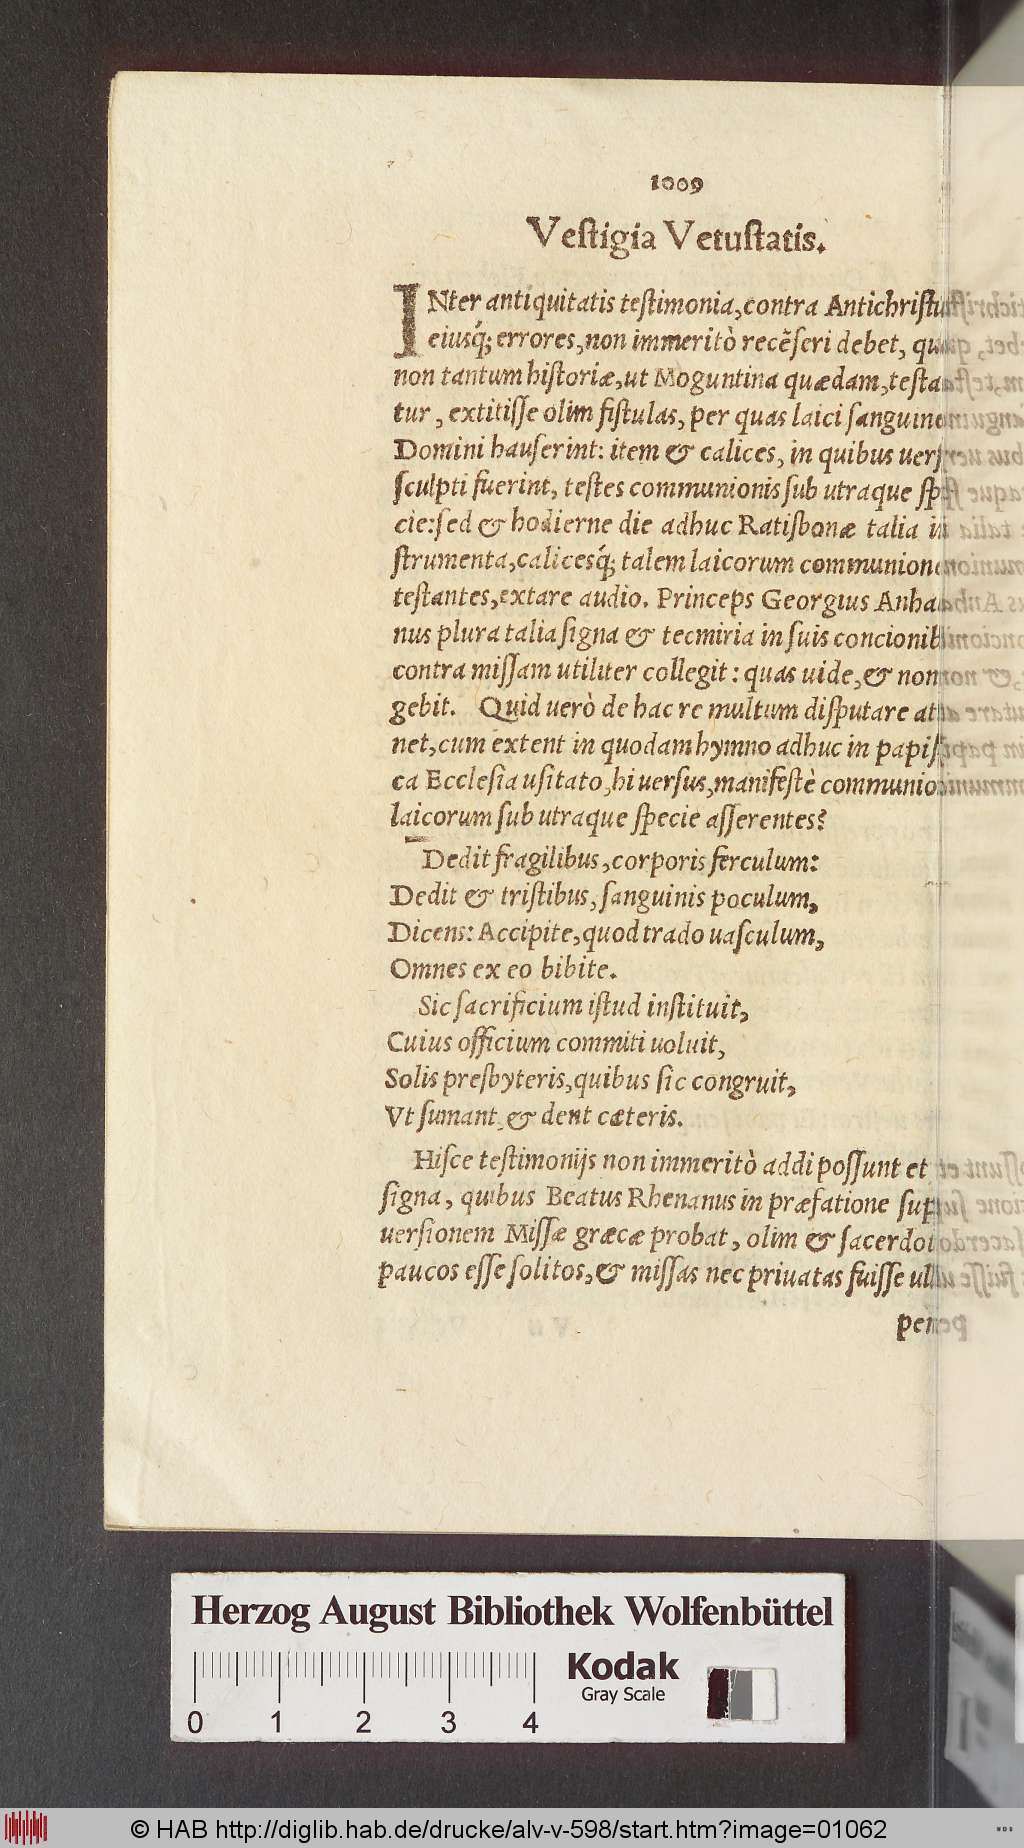 1009
Veſtigia Vetuſtatis.
INter antiquitatis teſtimonia, contra Antichriſtu
eiusq́; errores, non immeritò recẽſeri debet, qu
non tantum hiſtoriæ, ut Moguntina quædam, teſta
tur, extitiſſe olim fiſtulas, per quas laici ſanguine
Domini hauſerint: item & calices, in quibus uerſ
ſculpti fuerint, teſtes communionis ſub utraque ſpe
cie: ſed & hodierne die adhuc Ratiſbonæ talia in
ſtrumenta, calicesq́; talem laicorum communione
teſtantes, extare audio. Princeps Georgius Anhal
nus plura talia ſigna & tecmiria in ſuis concionib
contra miſſam utiliter collegit: quas uide, & non
gebit. Quid uerò de hac re multum diſputare at
net, cum extent in quodam hymno adhuc in papiſ
ca Eccleſia uſitato, hi uerſus, manifeſtè communio
laicorum ſub utraque ſpecie aſſerentes?
Dedit fragilibus, corporis ferculum:
Dedit & triſtibus, ſanguinis poculum,
Dicens: Accipite, quod trado uaſculum,
Omnes ex eo bibite.
Sic ſacrificium iſtud inſtituit,
Cuius officium commiti uoluit,
Solis preſbyteris, quibus ſic congruit,
Vt ſumant, & dent cæteris.
Hiſce teſtimonijs non immeritò addi poſſunt et
ſigna, quibus Beatus Rhenanus in præfatione ſup
uerſionem Miſſæ græcæ probat, olim & ſacerdot
paucos eſſe ſolitos, & miſſas nec priuatas fuiſſe ul
per
Herzog August Bibliothek Wolfenbüttel
Kodak
Gray Scale
0 1 2 3 4
© HAB http://diglib.hab.de/drucke/alv-v-598/start.htm?image=01062